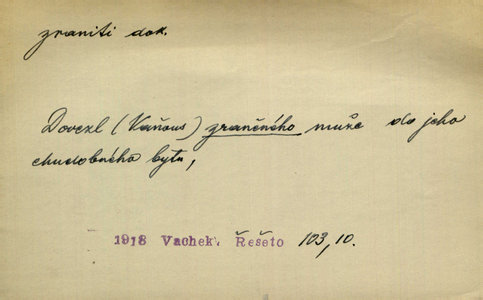 zraniti dok.
Dovezl (Vaňous) zraněného muže do jeho
chudobného bytu,
1918 Vachek. Řešeto 103,10.